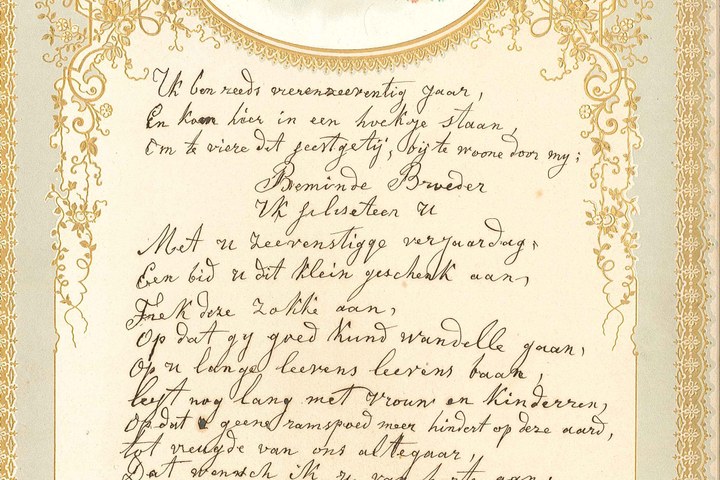 Ik ben reeds vierenzeeventig jaar,
En kom hier in een hoekje staan,
Om te viere dit feestgetij, bij te woone door my;
Beminde Broeder
Ik feliseteer u
Met u zeevenstigge verjaardag,
Een bid u dit klein geschenk aan,
Trek deze zokke aan,
Op dat gy goed kund wandelle gaan,
Op u lange leevens leevens baan,
leeft nog lang met vrouw en kinderren,
op dat u geene ramspoed meer hindert op deze aard,
tot vreugde van ons altegaar,
Dat wensch ik u van harte aan;